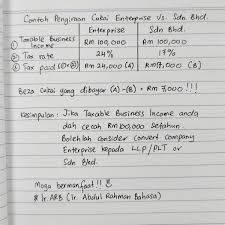 Contoh Pengiraan Cukai Enterprise Vs Sdn Bhd.
Enterprise Sdn. Bhd.
① Taxable Business Income RM 100,000 RM 100,000
② Tax rate 24% 17%
③ Tax paid (①×②) RM 24,000 (A) RM 17,000 (B)
Beza Cukai yang dibayar (A) - (B) = RM 7,000 !!!
Kesimpulan : Jika Taxable Business Income anda
dah cecah RM100,000 setahun.
Bolehlah consider convert company
Enterprise kepada LLP/PLT or
Sdn Bhd.
Moga bermanfaat!!
# Ir ARB (Ir. Abdul Rahman Bahasa)